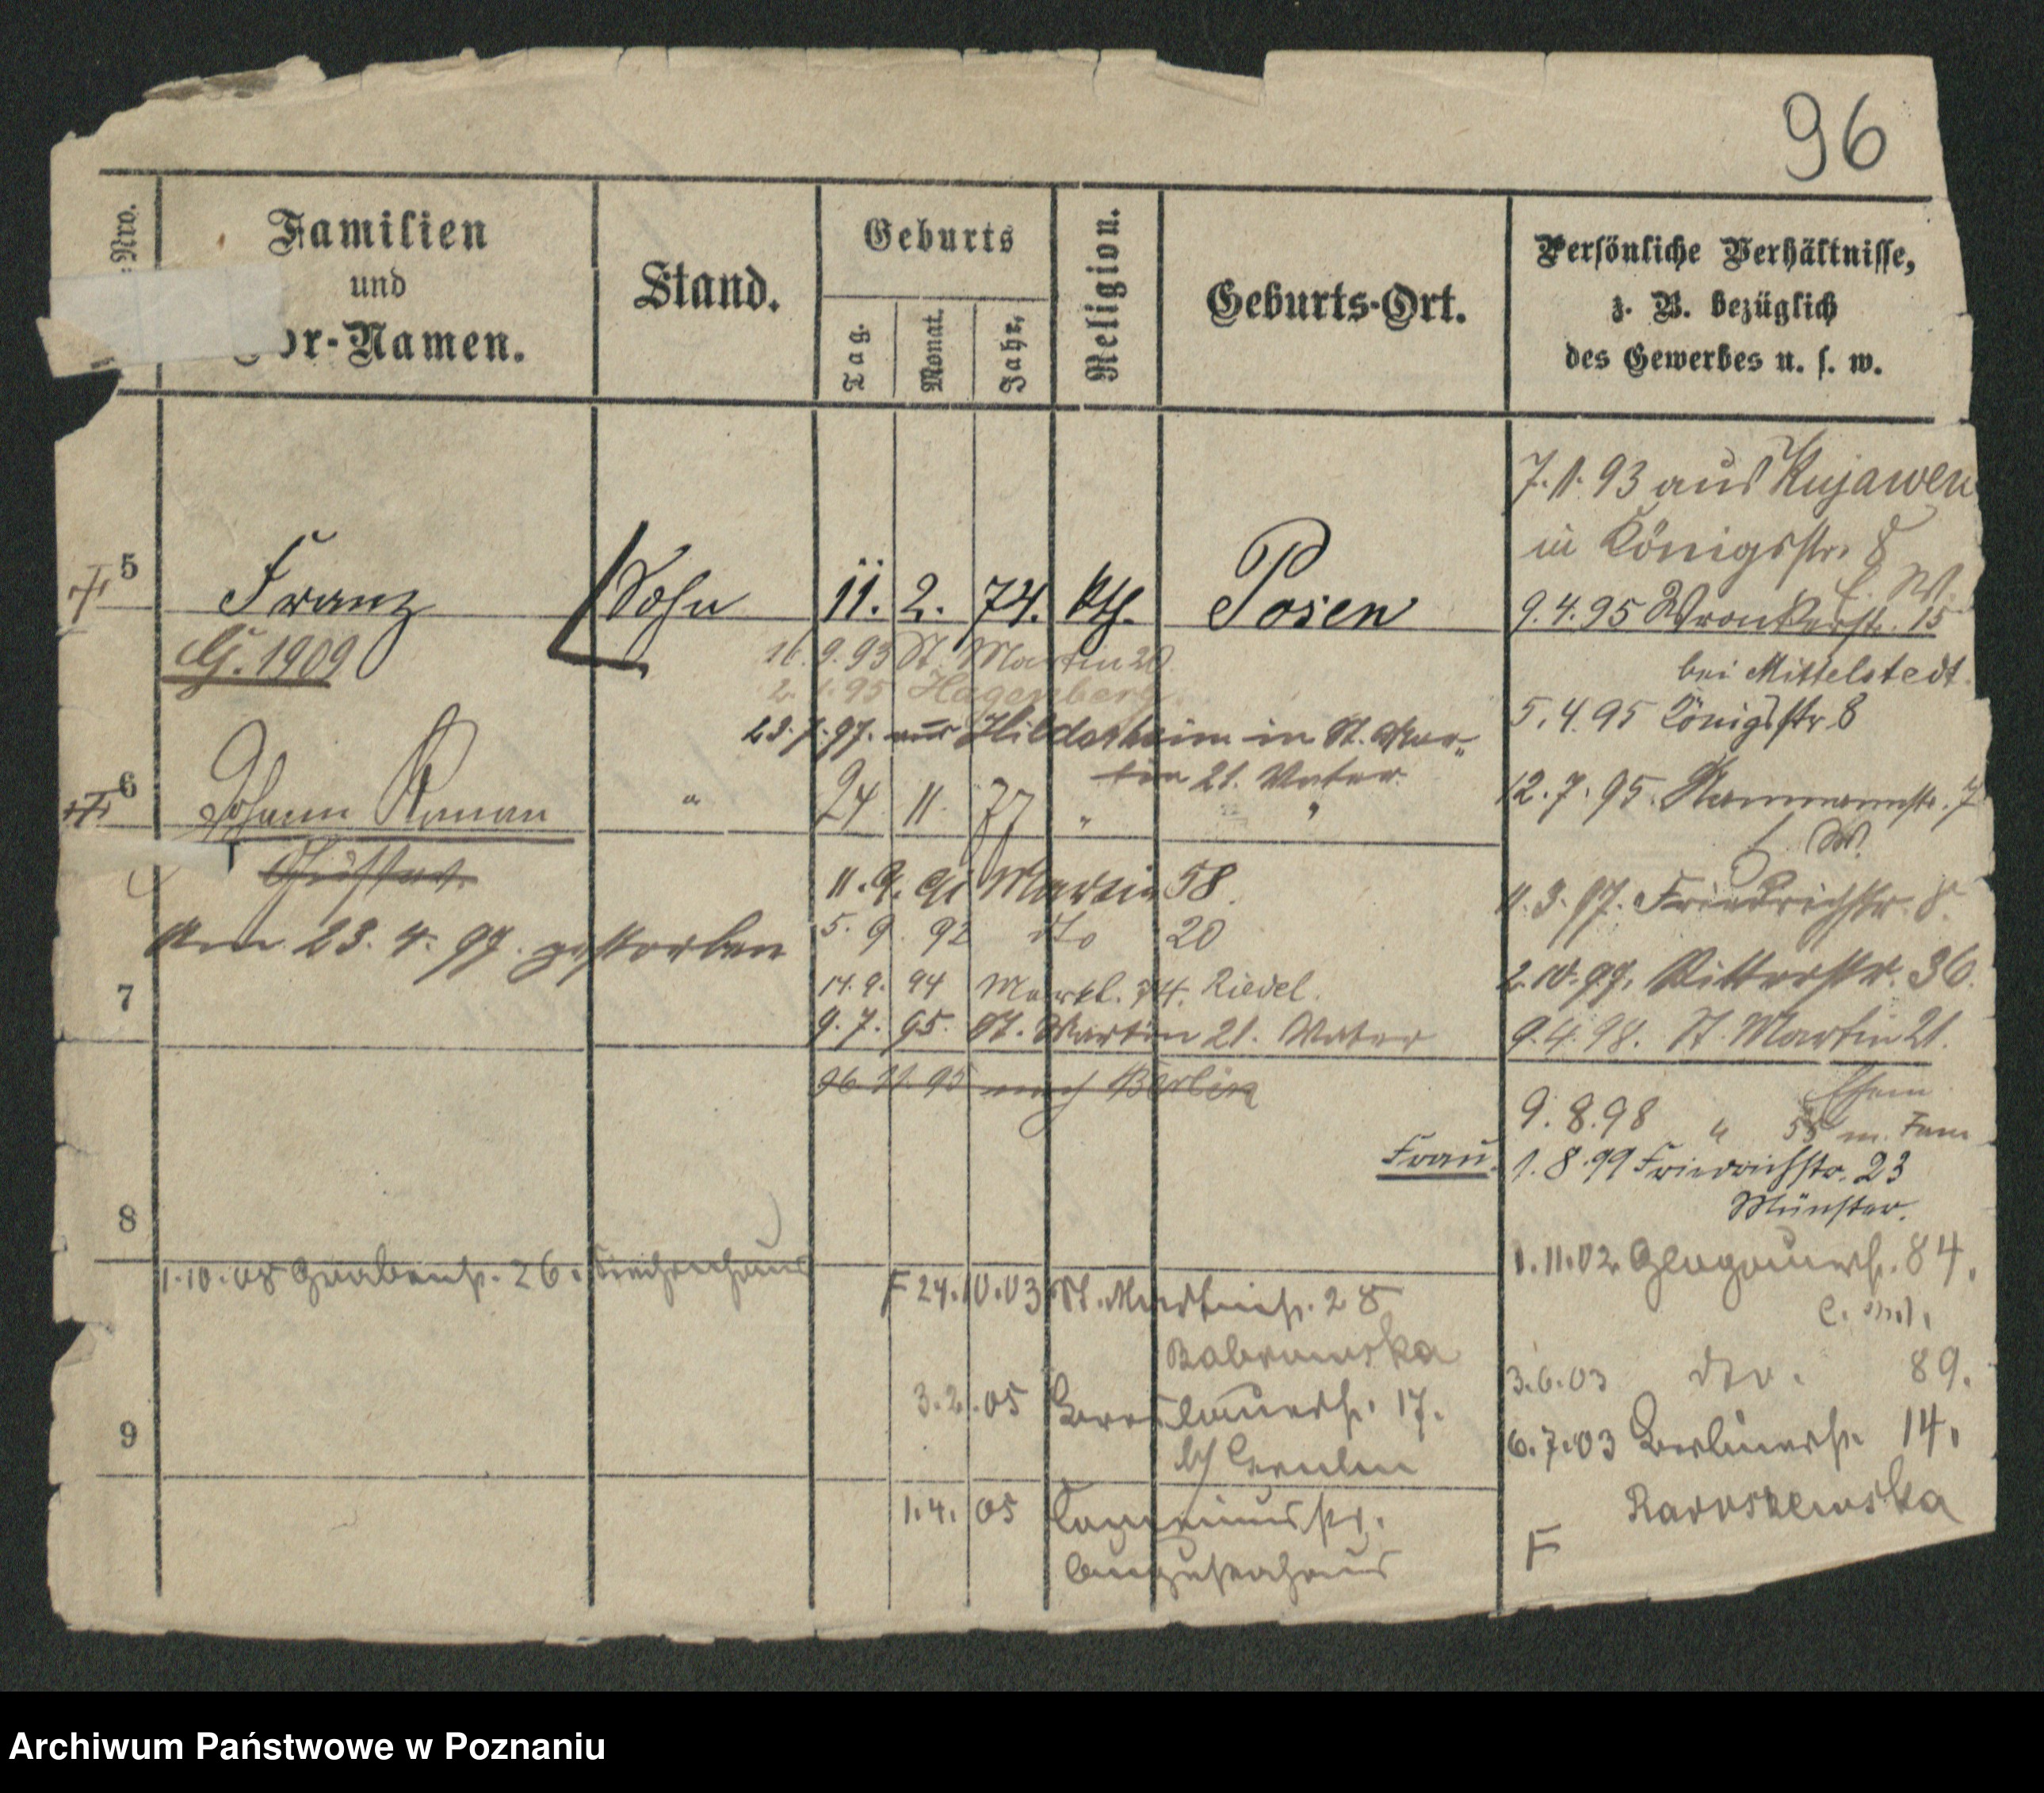 96
Nro.
Familien
und
or-Namen.
Stand.
Geburts
Tag.
Monat.
Jahr.
Religion.
Geburts-Ort.
Persönliche Verhältnisse,
z. B. bezüglich
des Gewerbes u. s. w.
7.1.93 aus Kujawen
in Königsstr. 8
5 Franz Sohn 11. 2. 74. kth. Posen
9.4.95 Wronkerstr. 15
bei Mittelstedt.
G. 1909
9.93 St. Martin 20.
2. 1. 95 Hagenberg
23.7.97. aus Hildesheim in St. Mar-
tin 21. Vater.
5.4.95 Königsstr. 8
6 Johann Roman " 24 11 77 " "
12.7.95. Naumannstr. 7
Gustav.
11.9.91 Martin 58.
5. 9. 92 dto 20
3.97. Friedrichstr. 8.
am 23. 4. 97. gestorben
7
14.9. 94 Markt. 74. Riedel.
9.7.95. St. Martin 21. Vater
2.10.97. Ritterstr. 36.
9.4.98. St. Martin 21.
26.11.95 nach Berlin
Ehem
9.8.98 " 55 m. Fam
Frau. 1.8.99 Friedrichstr. 23
Münster.
8
1.10.08 Grabenstr. 26. Siechenhaus
1.11.02 Glogauerstr. 84.
F 24.10.03 St. Martinstr. 28
Bobrowska
3.6.03 dto. 89.
3.2.05 Breslauerstr. 17.
6.7.03 Berlinerstr. 14.
9
1.4.05
F